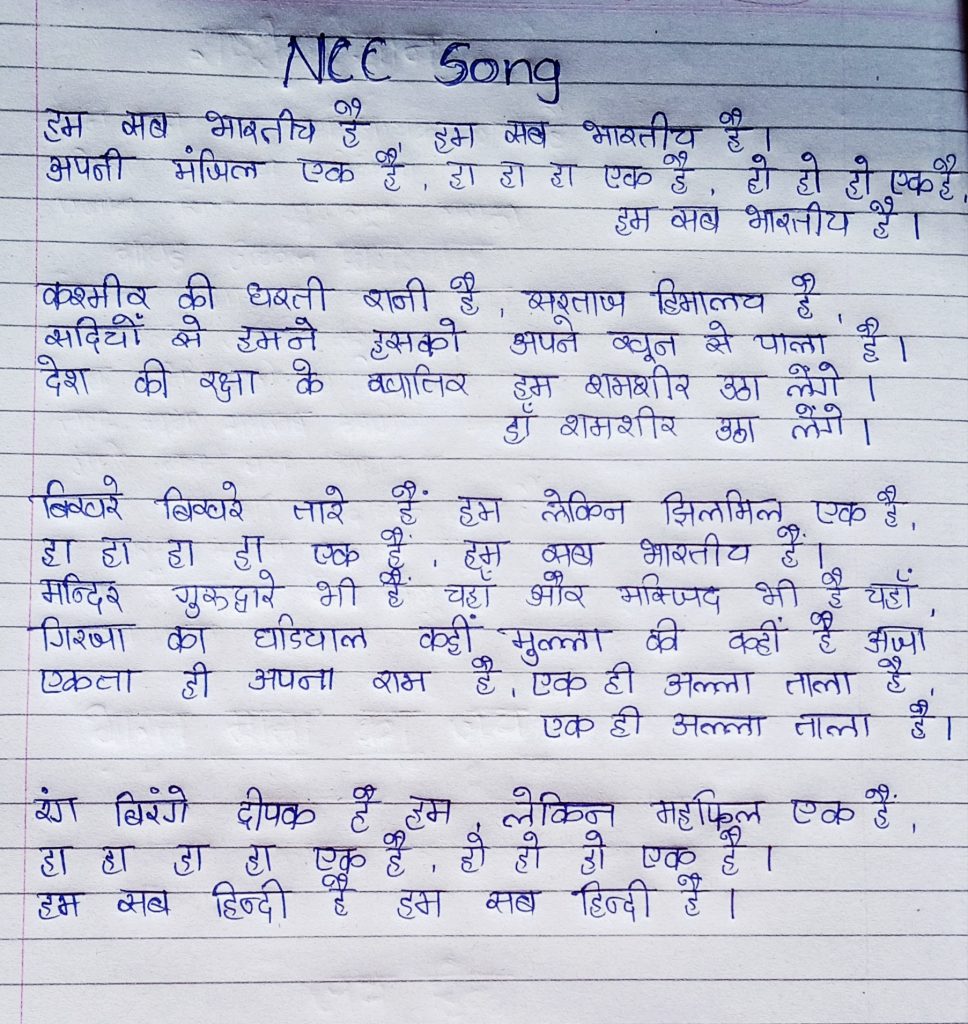 NCC Song
हम सब भारतीय है, हम सब भारतीय है।
अपनी मंजिल एक है, हा हा हा एक है, हो हो हो एक है,
हम सब भारतीय है।
कश्मीर की धरती रानी है, सरताज हिमालय है,
सदियों से हमने इसको अपने खून से पाला है।
देश की रक्षा के खातिर हम शमशीर उठा लेंगे।
हाँ शमशीर उठा लेंगे।
बिखरे बिखरे तारे हैं हम लेकिन झिलमिल एक है,
हा हा हा हा एक है, हम सब भारतीय हैं।
मन्दिर गुरुद्वारे भी हैं यहाँ और मस्जिद भी है यहाँ,
गिरजा का घडियाल कहीं मुल्ला की कहीं है अजा
एकता ही अपना राम है, एक ही अल्ला ताला है,
एक ही अल्ला ताला है।
रंग बिरंगे दीपक है हम, लेकिन महफिल एक है,
हा हा हा हा एक है, हो हो हो एक है।
हम सब हिन्दी है हम सब हिन्दी है।